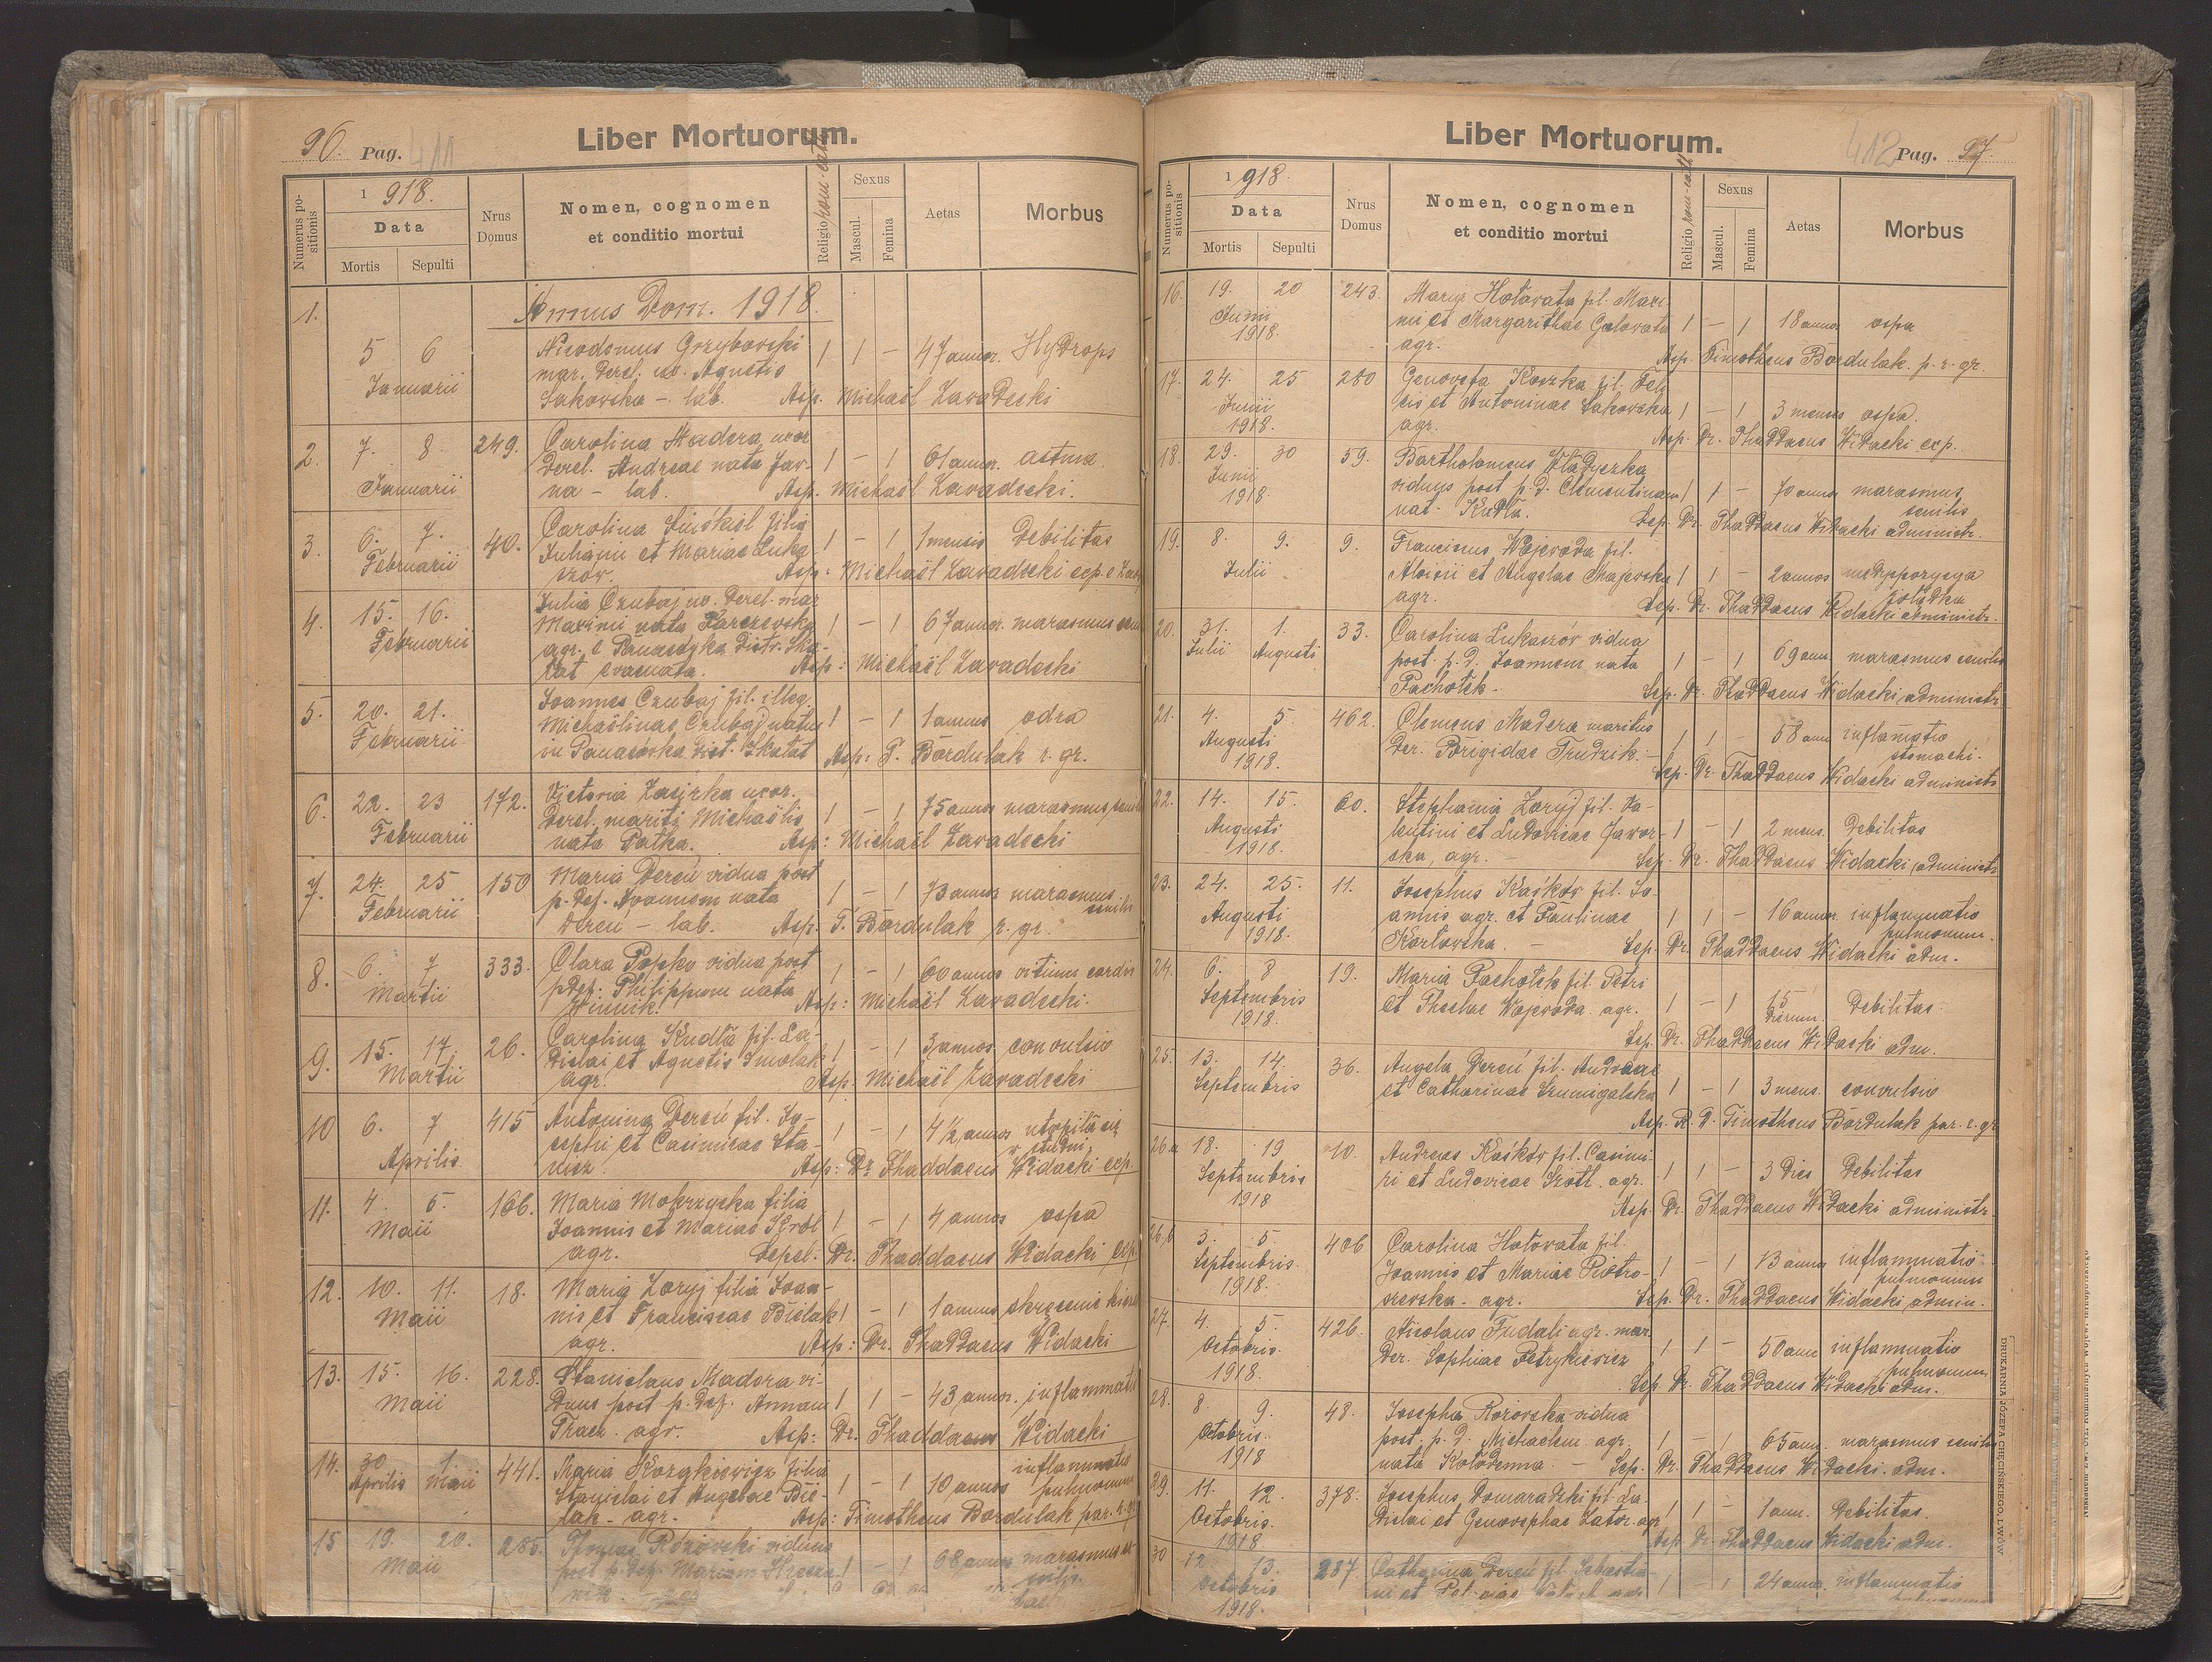 96. Pag. 411
Liber Mortuorum.
Numerus positionis
1918.
Data
Mortis Sepulti
Nrus Domus
Nomen, cognomen
et conditio mortui
Religio rom-cath
Sexus
Mascul. Femina
Aetas
Morbus
Annus Dom. 1918.
1. 5 6 Januarii
Nicodemus Grzybowski 1 1 – 47 annor. Hydrops
mar. derel. ux. Agnetis
Sakowska – lab. Asp. Michaël Zawadecki
2. 7. 8. Januarii 249.
Carolina Madera uxor
derel. Andreae nata Jaw- 1 – 1 61 annor. astma
na – lab. Asp. Michaël Zawadecki.
3. 6. 7. Februarii 40.
Carolina filia 1 – 1 1 mensis Debilitas
Juliani et Mariae Luka
szów. Asp: Michaël Zawadecki exp.
4. 15. 16. Februarii
Julia Czubaj ux. derel. mar
Maximi nata 1 – 1 67 annor. marasmus
agr. e Panasówka Distr. Ska-
łat evacuata. Asp: Michaël Zawadecki
5. 20. 21. Februarii
Joannes Czubaj fil. illeg.
Michaëlinae Czubaj natus 1 – 1 1 annus odra
in Panasówka dist. Skałat Asp: T. Bordulak r. gr.
6. 22. 23 Februarii 172.
Victoria uxor.
derel. mariti Michaëlis 1 – 1 75 annos marasmus
nata Pałka. Asp: Michaël Zawadecki
7. 24. 25 Februarii 150
Maria Dereń vidua post
p. def. Joannem nata 1 – 1 73 annos marasmus senilis
Dereń – lab. Asp. T. Bordulak r. gr.
8. 6. 7 Martii 333.
Clara Popko vidua post 1 – 1 60 annos vitium cordis
p def. Philippum nata
Winnik. Asp: Michaël Zawadecki.
9. 15. 17. Martii 26.
Carolina Kudła fil. La-
dislai et Agnetis Smolak 1 – 1 3 annos convulsio
agr. Asp. Michaël Zawadecki
10 6. 7 Aprilis 415
Antonina Dereń fil. Jo-
sephi et Casimirae Sta- 1 – 1 4½ annos utopiła się w studni
Asp: Dr. Thaddaeus Widacki exp.
11. 4. 5. Maii 166.
Maria Mokrzycka filia
Joannis et Mariae Król 1 – 1 4 annos ospa
agr. Sepel. Dr. Thaddaeus Widacki exp.
12. 10. 11. Maii 18.
Maria Zaryj filia Joan-
nis et Franciscae Bielak 1 – 1 1 annus skręcenie
agr. Asp: Dr. Thaddaeus Widacki
13. 15. 16. Maii 228.
Stanislaus Madera vi-
duus post p. def. Annam 1 1 – 43 annor. inflammatio
Tracz. agr. Asp: Dr. Thaddaeus Widacki
14. 30 Aprilis 1 Maii 441.
Maria Kozakiewicz filia
Stanislai et Angelae Bie- 1 – 1 10 annos inflammatio pulmonum
lak – agr. Asp: Timotheus Bordulak par. r. gr.
15 19. 20. Maii 285.
Thomas Rozowski viduus
post p. def. Mariam 1 – 1 68 annos marasmus senilis.
412 Pag. 97.
Liber Mortuorum.
Numerus positionis
1918.
Data
Mortis Sepulti
Nrus Domus
Nomen, cognomen
et conditio mortui
Religio rom-cath
Sexus
Mascul. Femina
Aetas
Morbus
16. 19. 20 Junii 1918. 243.
Maria Hołowata fil. Maxi-
mi et Margarithae Gołowata 1 – 1 18 annor. ospa
agr. Asp. Timotheus Bordulak. p. r. gr.
17. 24. 25 Junii 1918. 280
Genovefa Koszka fil. Feli-
cis et Antoninae Sakowska 1 – 1 3 menses ospa
agr. Asp. Dr. Thaddaeus Widacki exp.
18. 29. 30 Junii 1918. 59.
Bartholomeus Władyczka
viduus post p. d. Clementinam 1 1 – 70 annor marasmus senilis
nat. Kudła. Sep. Dr. Thaddaeus Widacki administr.
19. 8. 9. Julii 9.
Franciscus Wojewoda fil.
Aloisii et Angelae Majewska 1 1 – 2 annos niedyspozycya żołądka
agr. Sep. Dr. Thaddaeus Widacki administr.
20. 31. Julii 1. Augusti 33.
Carolina Lukaszów vidua
post. p. d. Joannem nata 1 – 1 69 ann. marasmus senilis
Pachołek. Sep. Dr. Thaddaeus Widacki administr
21. 4. 5. Augusti 1918. 462.
Clemens Madera maritus
der. Brigidae Trudzik. – 1 1 – 58 ann inflamatio stomachi.
Sep. Dr. Thaddaeus Widacki administr
22. 14. 15. Augusti 1918. 60.
Stephania Zaryj fil. Va-
lentini et Ludovicae Jawor- 1 – 1 2 mens. Debilitas
ska, agr. – Sep. Dr. Thaddaeus Widacki, administr
23. 24. 25. Augusti 1918. 11.
Josephus Kaśków fil. Jo-
annis agr. et Paulinae 1 1 – 16 annor. inflammatio pulmonum.
Kozłowska. – Sep. Dr. Thaddaeus Widacki adm.
24. 6. 8 Septembris 1918. 19.
Maria Pachołek fil. Petri
et Theclae Wojewoda. agr. 1 – 1 15 dierum. Debilitas.
Sep. Dr. Thaddaeus Widacki adm.
25. 13. 14. Septembris 36.
Angela Dereń fil. Andreae
et Catharinae Szumigalska 1 – 1 3 mens. convulsio
Asp. R. D. Timotheus Bordulak par. r. gr
26a 18. 19 Septembris 1918 10.
Andreas Kaśków fil. Casimi-
ri et Ludovicae Szott. agr. 1 1 – 3 dies Debilitas
Asp. Dr. Thaddaeus Widacki administr.
26.b 3. 5. Septembris. 1918. 406
Carolina Hołowata fil.
Joannis et Mariae Piotro- 1 – 1 13 annor inflammatio pulmonum
szewska. agr. Sep. Dr. Thaddaeus Widacki admin.
27. 4. 5. Octobris. 1918. 426.
Nicolaus Fudali agr. mar.
der. Sophiae Petrykiewicz 1 1 – 50 ann inflammatio pulmonum
Sep. Dr. Thaddaeus Widacki adm.
28. 8. 9. Octobris. 1918 48.
Josepha Rozowska vidua
post. p. d. Michaelem agr. 1 – 1 65 ann. marasmus senilis
nata Kołodenna. – Sep. Dr. Thaddaeus Widacki. adm.
29. 11. 12. Octobris. 1918 378.
Josephus Domaradzki fil. La-
dislai et Genovephae Zator. agr 1 1 – 1 ann. Debilitas.
Asp. Dr. Thaddaeus Widacki adm.
30 12. 13. Octobris 1918. 287.
Catharina Dereń fil. Sebastia-
ni et 1 – 1 24 annor. inflammatio
DRUKARNIA JÓZEFA CHĘCIŃSKIEGO, LWÓW